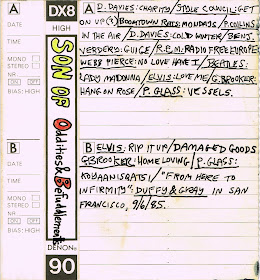 A DX8 A D. DAVIES: CHARITY / STYLE COUNCIL: GET
DATE HIGH ON UP / BOOMTOWN RATS: MOUDABS / P. COLLINS:
TIME IN THE AIR / D. DAVIES: COLD WINTER / BENJ.
VERDERY: GUICE / R.E.M. RADIO FREE EUROPE
MONO WEBB PIERCE: NO LOVE HAVE I / BEATLES:
STEREO LADY MADONNA / ELVIS: LOVE ME / G. BROOKER:
NR HANG ON ROSE / P. GLASS: VESSELS.
ON OFF
BIAS: HIGH
SON OF Oddities & Befuddlements
B B ELVIS: RIP IT UP / DAMAGED GOODS
DATE G BROOKER: HOME LOVING / P. GLASS:
TIME KOYAANISQATSI / "FROM HERE TO
INFIRMITY" DUFFY & GRAY IN SAN
MONO FRANCISCO, 9/6/85.
STEREO
NR
ON OFF
BIAS: HIGH
DENON
90